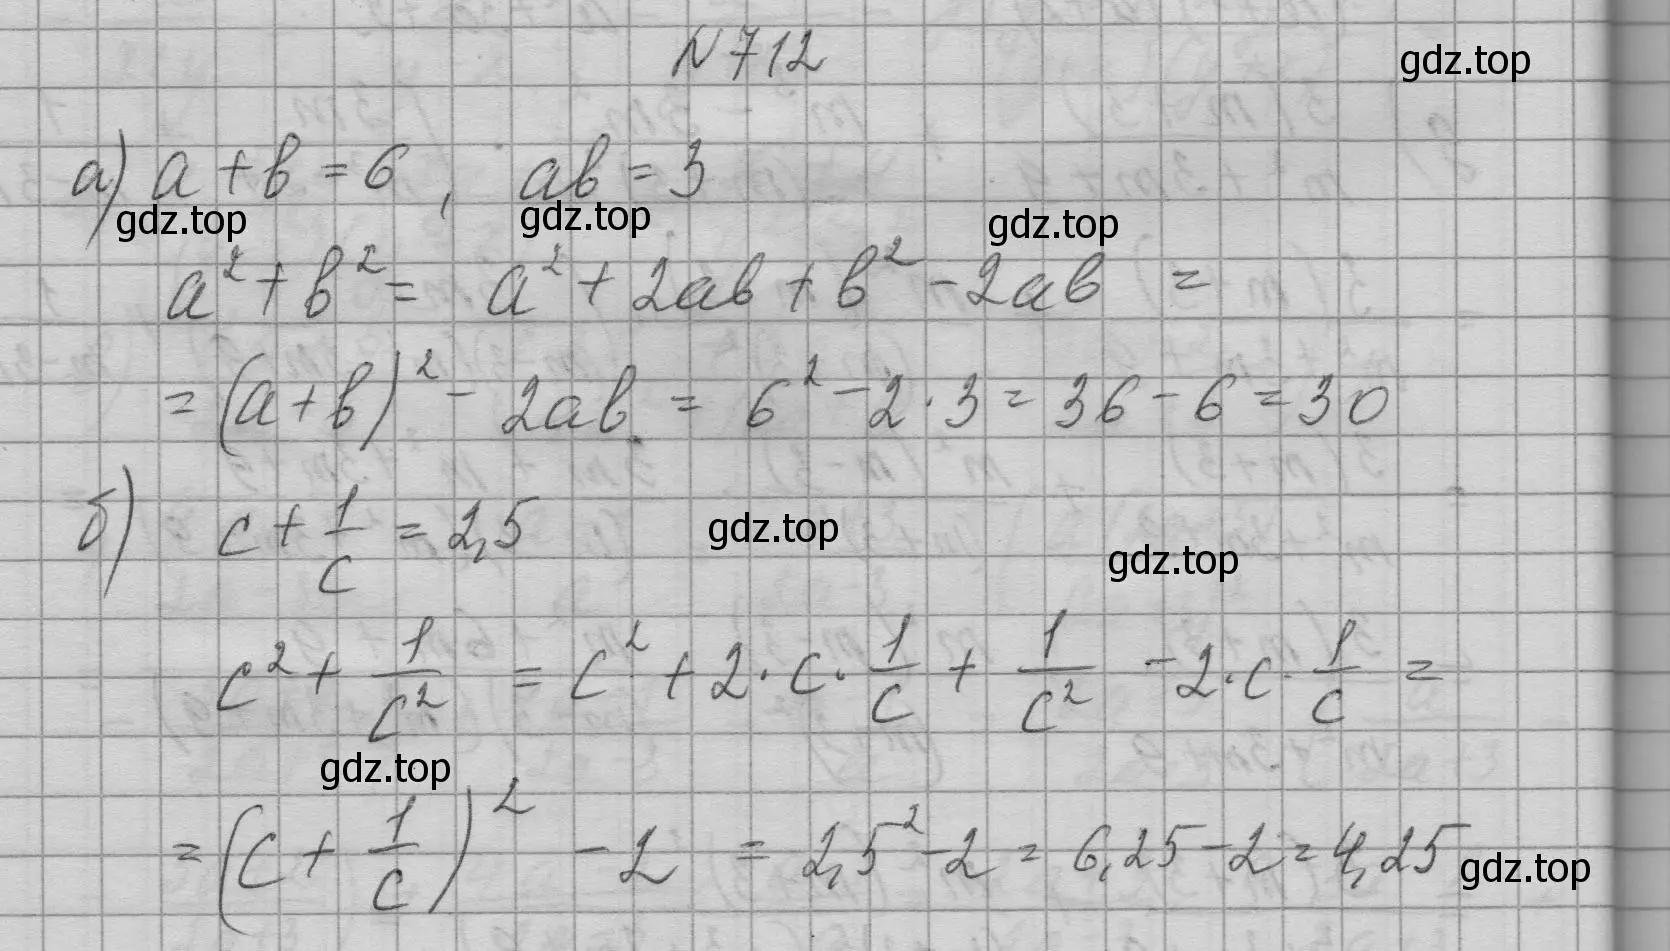 N 712
gdz.top
а) a + b = 6 , ab = 3
gdz.top gdz.top gdz.top
a² + b² = a² + 2ab + b² - 2ab =
= (a + b)² - 2ab = 6² - 2 · 3 = 36 - 6 = 30
б) c + 1/c = 2,5
gdz.top gdz.top
c² + 1/c² = c² + 2 · c · 1/c + 1/c² - 2 · c · 1/c =
gdz.top
= (c + 1/c)² - 2 = 2,5² - 2 = 6,25 - 2 = 4,25
gdz.top